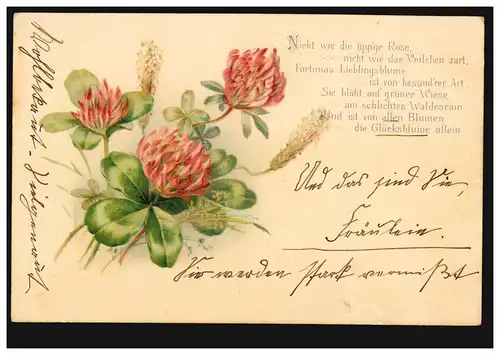 Nicht wie die üpp'ge Rose,
nicht wie das Veilchen zart,
Fortunas Lieblingsblume
ist von besond'rer Art,
Sie blüht auf grüner Wiese,
am schlichten Waldesrain
Und ist von allen Blumen
die Glücksblume allein
Und das sind Sie,
Fräulein.
Sie werden stark vermißt
Wohlbekannt -